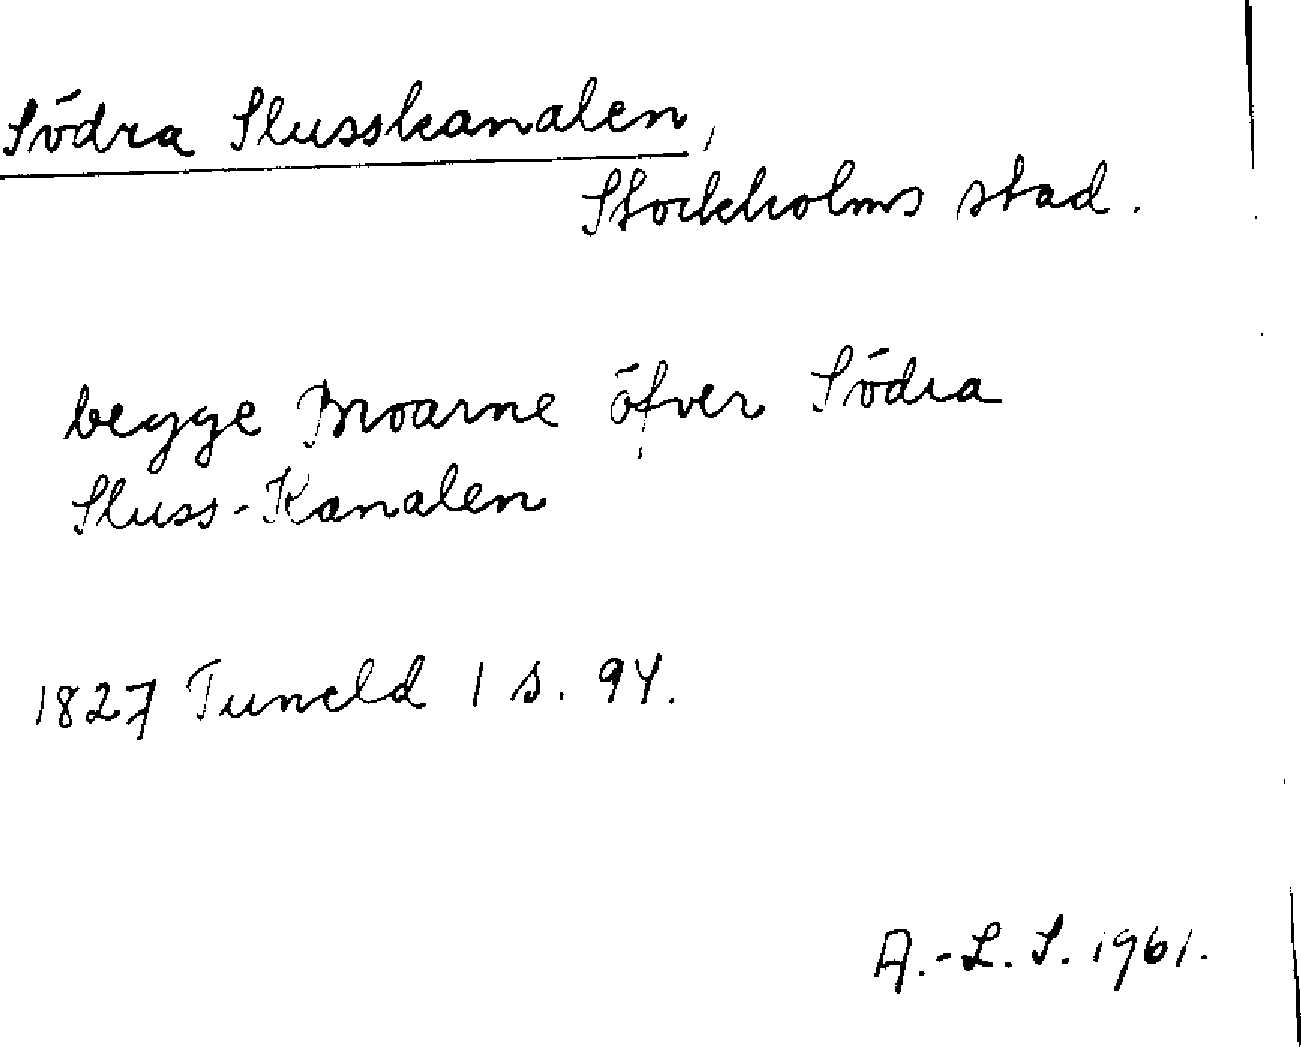 Södra Slusskanalen,
Stockholms stad.
begge Broarne öfver Södra
Sluss-Kanalen
1827 Tuneld 1 s. 94.
A.-L. S. 1961.